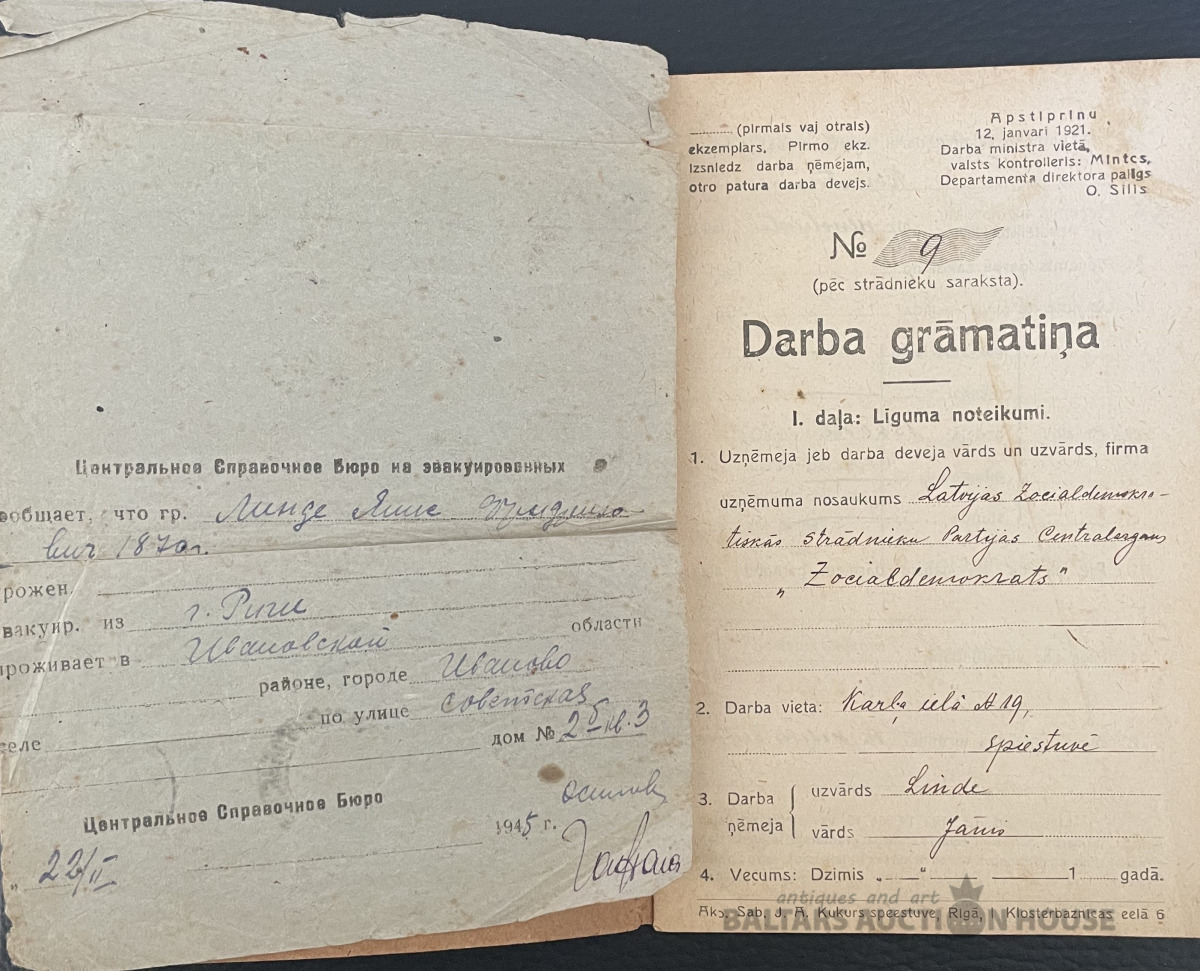 Центральное Справочное Бюро на эвакуированных
ообщает, что гр. Линде Яние
вич 1870г.
рожен.
вакуир. из г. Риги
проживает в Ивановской области
районе, городе Иваново
по улице Советская
селе дом № 25 кв. 3
Центральное Справочное Бюро
„ 22/II 1945 г.
(pirmais vaj otrais)
ekzemplars. Pirmo ekz.
izsniedz darba ņēmejam,
otro patura darba devejs.
Apstiprinu
12. janvari 1921.
Darba ministra vietā,
valsts kontrolleris: Mintcs,
Departamenta direktora palīgs
O. Silis
№ 9
(pēc strādnieku saraksta).
Darba grāmatiņa
I. daļa: Līguma noteikumi.
1. Uzņēmeja jeb darba deveja vārds un uzvārds, firma
uzņēmuma nosaukums Latvijas Zocialdemokra-
tiskās Strādnieku Partijas Centralorgans
„Zocialdemokrats"
2. Darba vieta: Karļa ielā № 19,
spiestuvē
3. Darba ņēmeja { uzvārds Linde
vārds Jānis
4. Vecums: Dzimis „ " 1 gadā.
Akc. Sab. J. A. Kukurs speestuve, Rīgā, Klosterbaznicas eelā 6
antiques and art
BALTARS AUCTION HOUSE